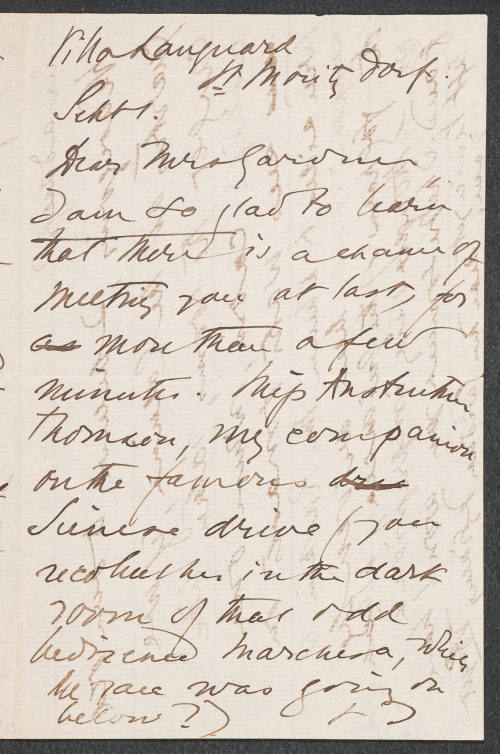 Villa Languard
St Moritz Dorf.
Sept 1.
Dear Mrs Gardner,
I am so glad to learn
that there is a chance of
meeting you at last, for
as more than a few
minutes. Miss Anstruther
Thomson, my companion
on the famous
Sienese drive (you
recollect her in the dark
room of that odd
bedizened Marchesa, while
the race was going on
below?)